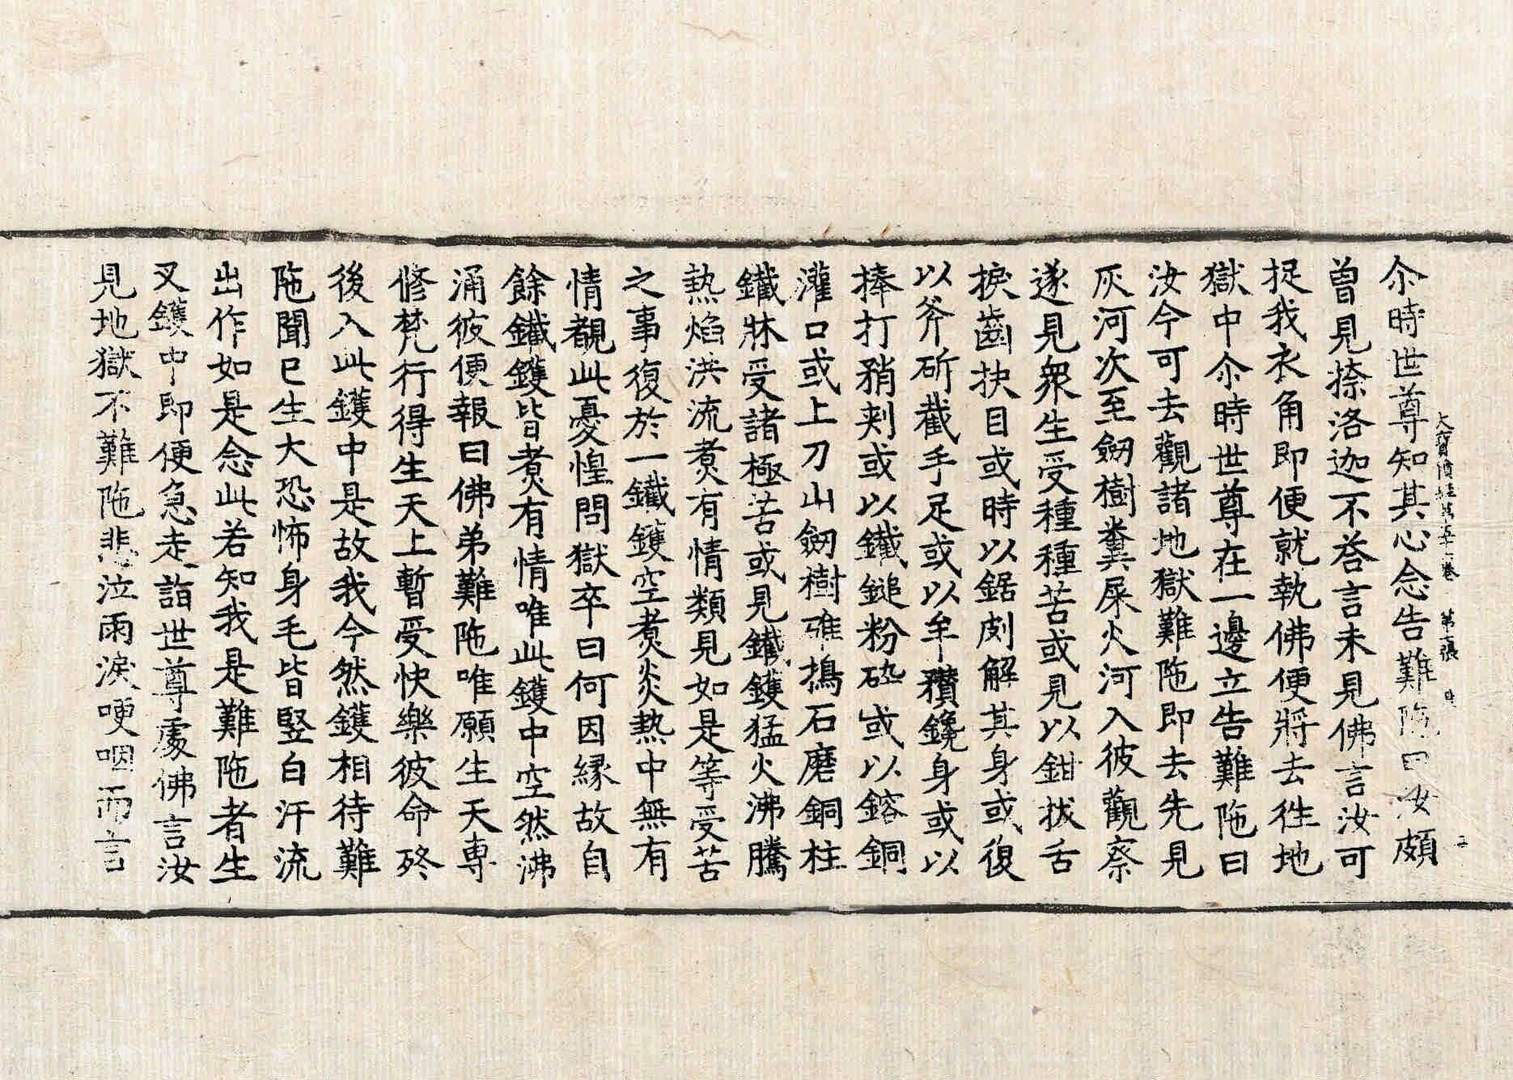 大寶積經第五十六卷 第二張 時
尒時世尊知其心念告難陁曰汝頗
曽見捺洛迦不荅言未見佛言汝可
捉我衣角即便就執佛便將去徃地
獄中尒時世尊在一邊立告難陁曰
汝今可去觀諸地獄難陁即去先見
灰河次至劒樹糞屎火河入彼觀察
遂見衆生受種種苦或見以鉗拔舌
捩齒抉目或時以鋸㓟解其身或復
以斧斫截手足或以牟䂎鑱身或以
棒打矟刺或以鐵鎚粉碎或以鎔銅
灌口或上刀山劒樹碓擣石磨銅柱
鐵牀受諸極苦或見鐵鑊猛火沸騰
熱焰洪流煑有情類見如是等受苦
之事復於一鐵鑊空煑炎熱中無有
情覩此憂惶問獄卒曰何因縁故自
餘鐵鑊皆煑有情唯此鑊中空然沸
涌彼便報曰佛弟難陁唯願生天專
修梵行得生天上暫受快樂彼命終
後入此鑊中是故我今然鑊相待難
陁聞已生大恐怖身毛皆竪白汗流
出作如是念此若知我是難陁者生
叉鑊中即便急走詣世尊處佛言汝
見地獄不難陁悲泣雨淚哽咽而言